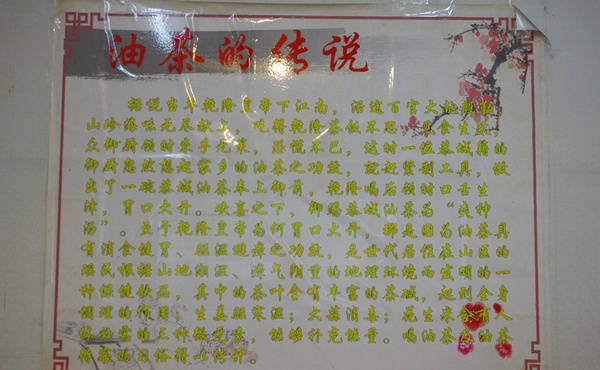 油茶的传说
据说当年乾隆皇帝下江南，沿途百官大
山珍海味无尽献上，吃得乾隆茶饭不思
众御厨顿时束手无策，恐慌不已，这时一位恭城籍的
御厨忽然想起家乡的油茶之功效，说赶紧制工具，做
出了一碗恭城油茶奉上御前，乾隆喝后顿时口舌生
津，胃口大开。欢喜之下，御赐恭城油茶为“爽神
汤”。至于乾隆皇帝为何胃口大开，那是因为油茶具
有消食健胃、驱湿避瘴之功效，是世代居住在山区的
瑶民根据山地潮湿、瘴气阴重的地理环境而发明的一
种保健饮品，其中的茶叶含有丰富的茶碱，起到全身
调理的作用；生姜驱寒湿；大蒜消毒；花生米含有人
的三种 ，能够补充能量。喝油茶